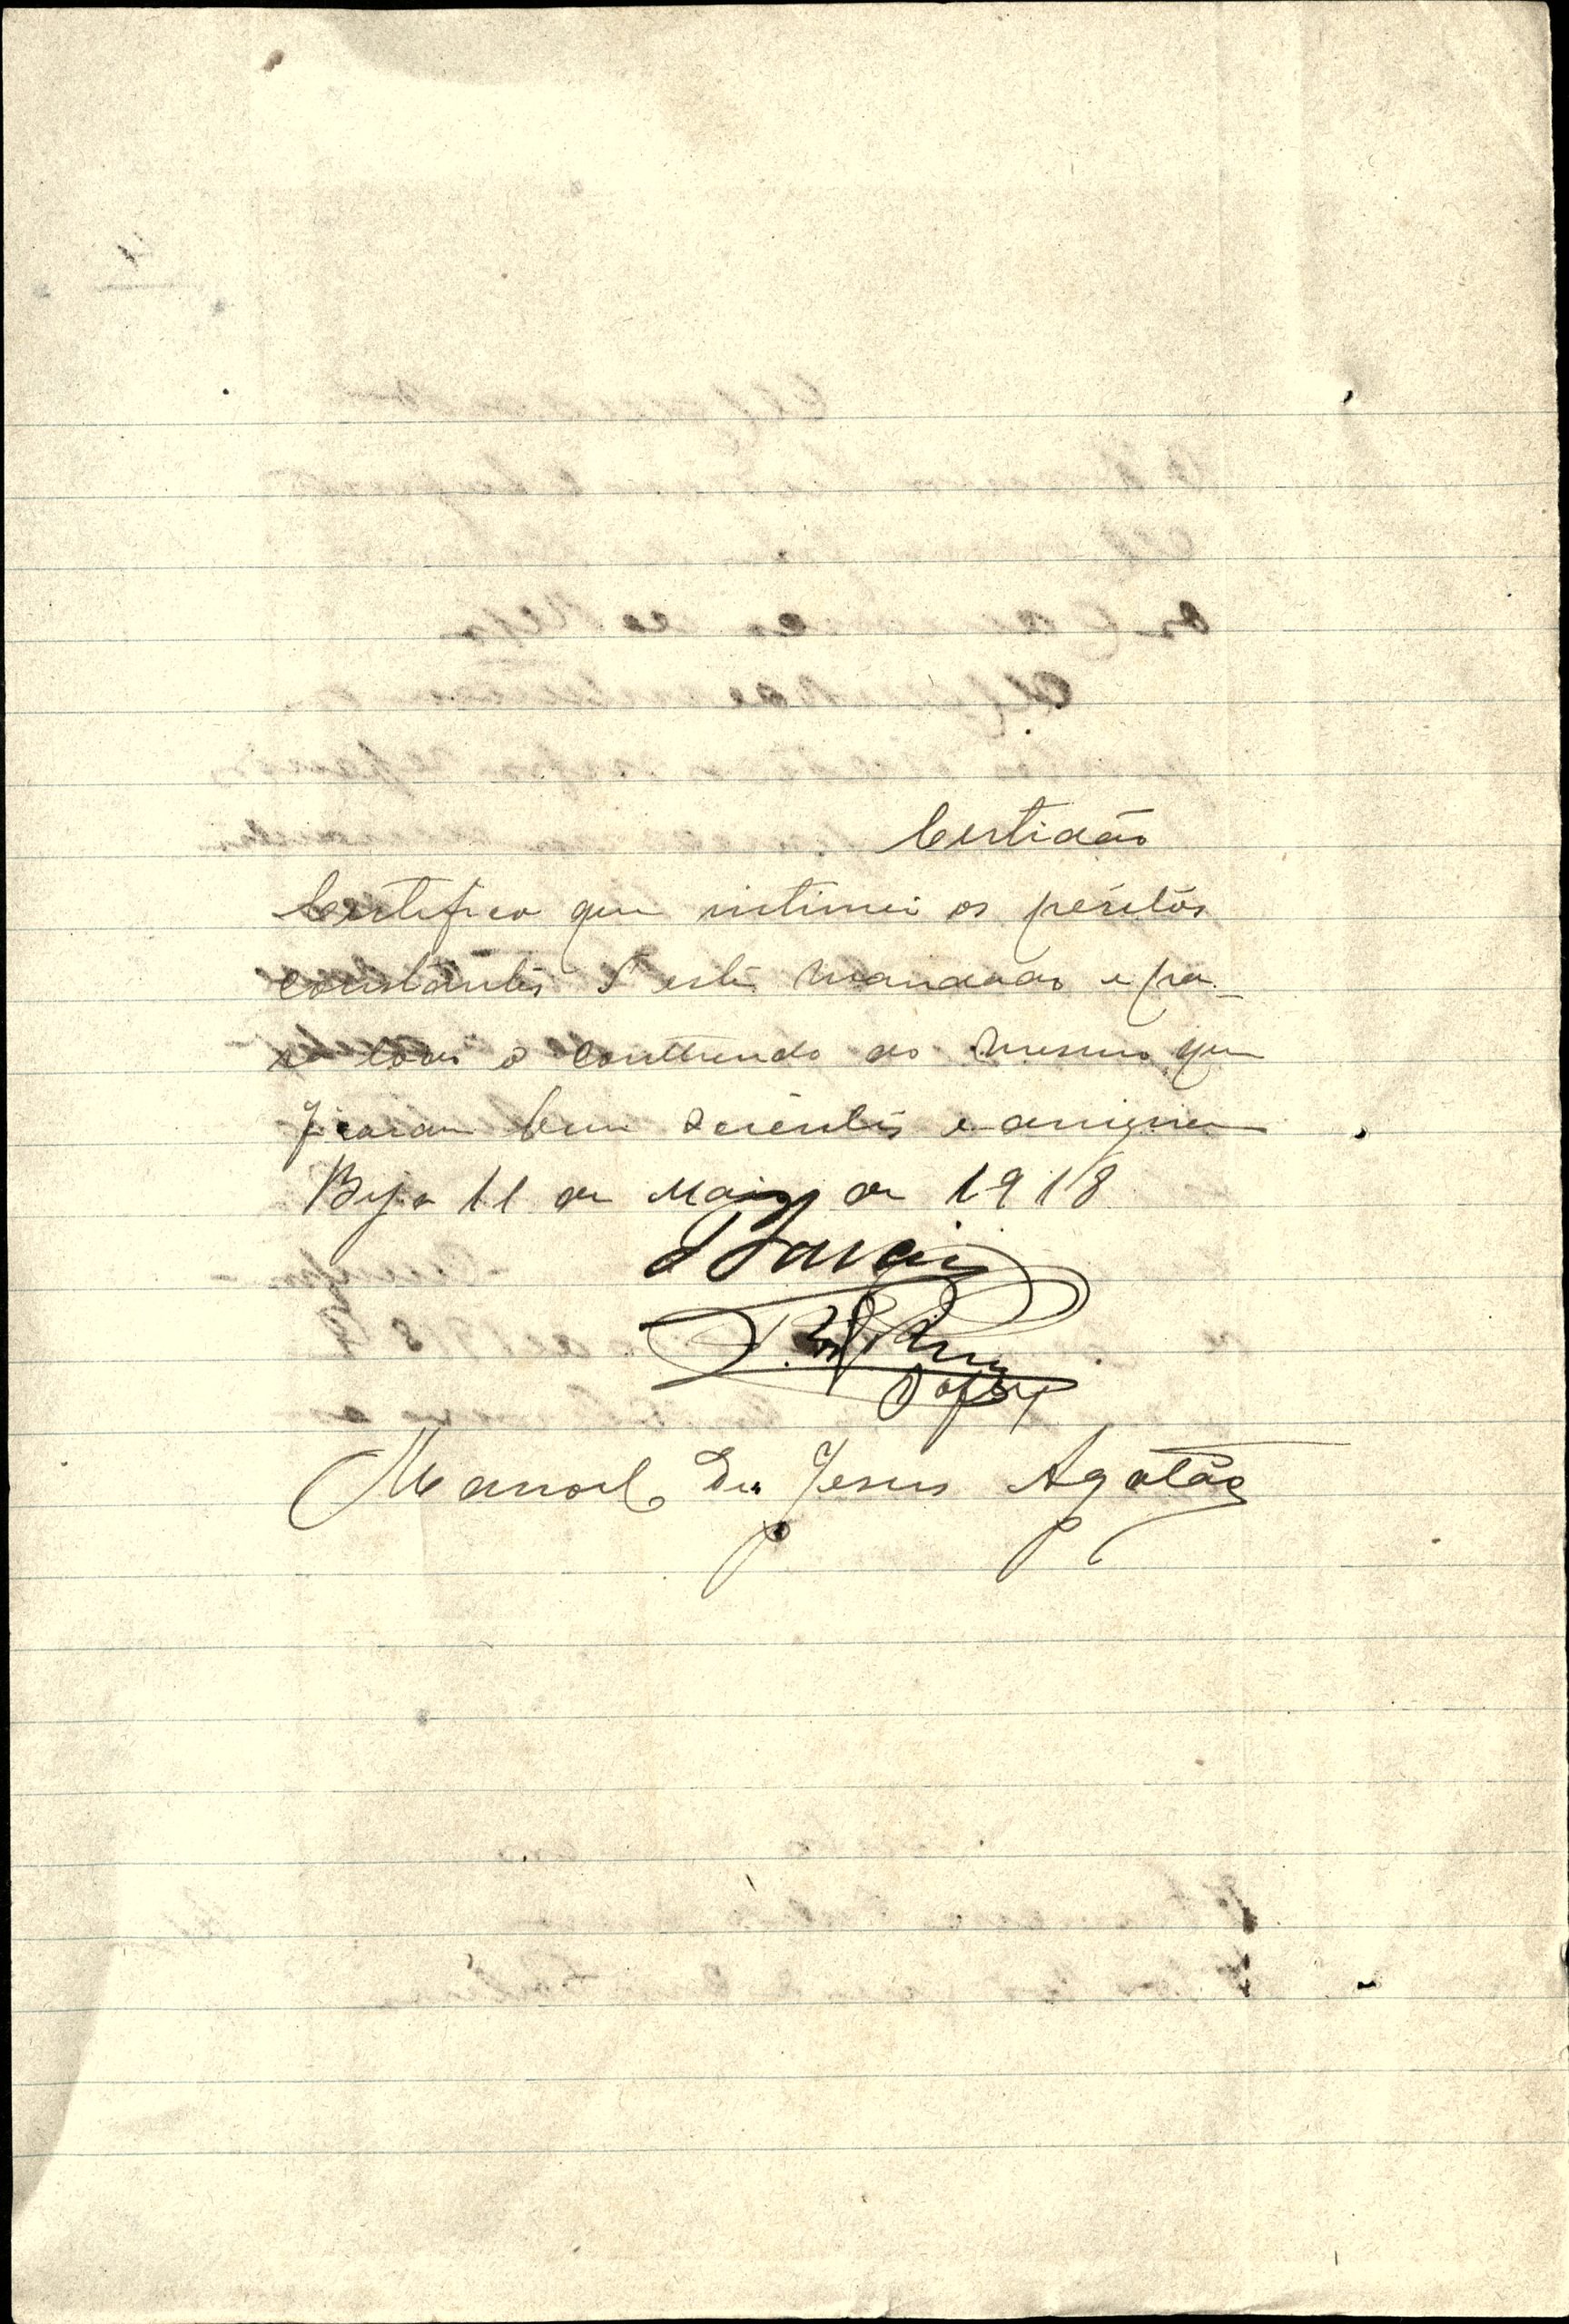 Certidão
Certifico que intimei os péritos
constántes d'este mandado e pa-
ra todo o contteudo do mesmo que
ficaram bem sciêntes e assignei
Beja 11 de Maio de 1918
Manoel De Jesus Agatão